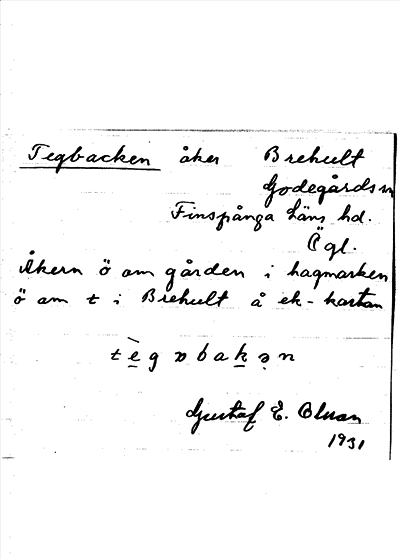 Tegbacken åker Brehult
Godegårds sn
Finspånga läns hd.
Ögl.
Åkern ö om gården i hagmarken
ö om t i Brehult å ek-kartan
tè̱gɒbaḵə̣n
Gustaf E. Olsson
1931